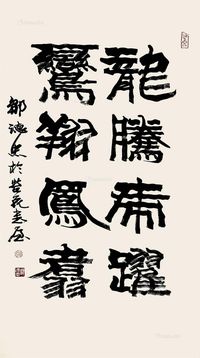 龍騰虎躍
鸞翔鳳翥
鄒德忠於